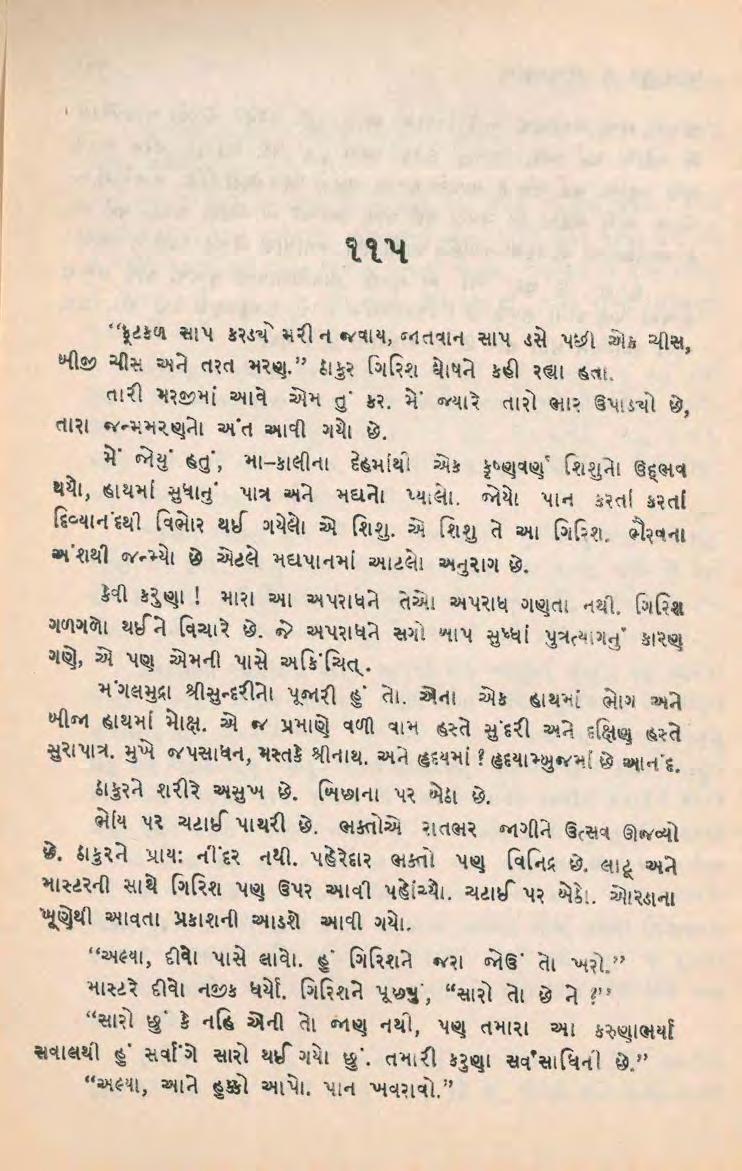 ૧૧૫
“ફૂટકળ સાપ કરડ્યે મરી ન જવાય, જાતવાન સાપ ડસે પછી એક ચીસ,
બીજી ચીસ અને તરત મરણ.” ઠાકુર ગિરિશ ઘોષને કહી રહ્યા હતા.
તારી મરજીમાં આવે એમ તું કર. મેં જ્યારે તારો ભાર ઉપાડ્યો છે,
તારા જન્મમરણનો અંત આવી ગયો છે.
મેં જોયું હતું, મા-કાલીના દેહમાંથી એક કૃષ્ણવર્ણ શિશુનો ઉદ્દભવ
થયો, હાથમાં સુધાનું પાત્ર અને મદ્યનો પ્યાલો. જોયો પાન કરતાં કરતાં
દિવ્યાનંદથી વિભોર થઈ ગયેલો એ શિશુ. એ શિશુ તે આ ગિરિશ. ભૈરવના
અંશથી જન્મ્યો છે એટલે મદ્યપાનમાં આટલો અનુરાગ છે.
કેવી કરુણા ! મારા આ અપરાધને તેઓ અપરાધ ગણતા નથી. ગિરિશ
ગળગળો થઈને વિચારે છે. જે અપરાધને સગો બાપ સુધ્ધાં પુત્રત્યાગનું કારણ
ગણે, એ પણ એમની પાસે અકિંચિત્.
મંગલમુદ્રા શ્રીસુન્દરીનો પૂજારી હું તો. એના એક હાથમાં ભોગ અને
બીજા હાથમાં મોક્ષ. એ જ પ્રમાણે વળી વામ હસ્તે સુંદરી અને દક્ષિણ હસ્તે
સુરાપાત્ર. મુખે જપસાધન, મસ્તકે શ્રીનાથ. અને હૃદયમાં ? હૃદયામ્બુજમાં છે આનંદ.
ઠાકુરને શરીરે અસુખ છે. બિછાના પર બેઠા છે.
ભોંય પર ચટાઈ પાથરી છે. ભક્તોએ રાતભર જાગીને ઉત્સવ ઊજવ્યો
છે. ઠાકુરને પ્રાયઃ નીંદર નથી. પહેરેદાર ભક્તો પણ વિનિદ્ર છે. લાટૂ અને
માસ્ટરની સાથે ગિરિશ પણ ઉપર આવી પહોંચ્યો. ચટાઈ પર બેઠો. ઓરડાના
ખૂણેથી આવતા પ્રકાશની આડશે આવી ગયો.
“અલ્યા, દીવો પાસે લાવો. હું ગિરિશને જરા જોઉં તો ખરો.”
માસ્ટરે દીવો નજીક ધર્યો. ગિરિશને પૂછ્યું, “સારો તો છે ને ?”
“સારો છું કે નહિ એની તો જાણ નથી, પણ તમારા આ કરુણાભર્યા
સવાલથી હું સર્વાંગે સારો થઈ ગયો છું. તમારી કરુણા સર્વસાધિની છે.”
“અલ્યા, આને હુક્કો આપો. પાન ખવરાવો.”